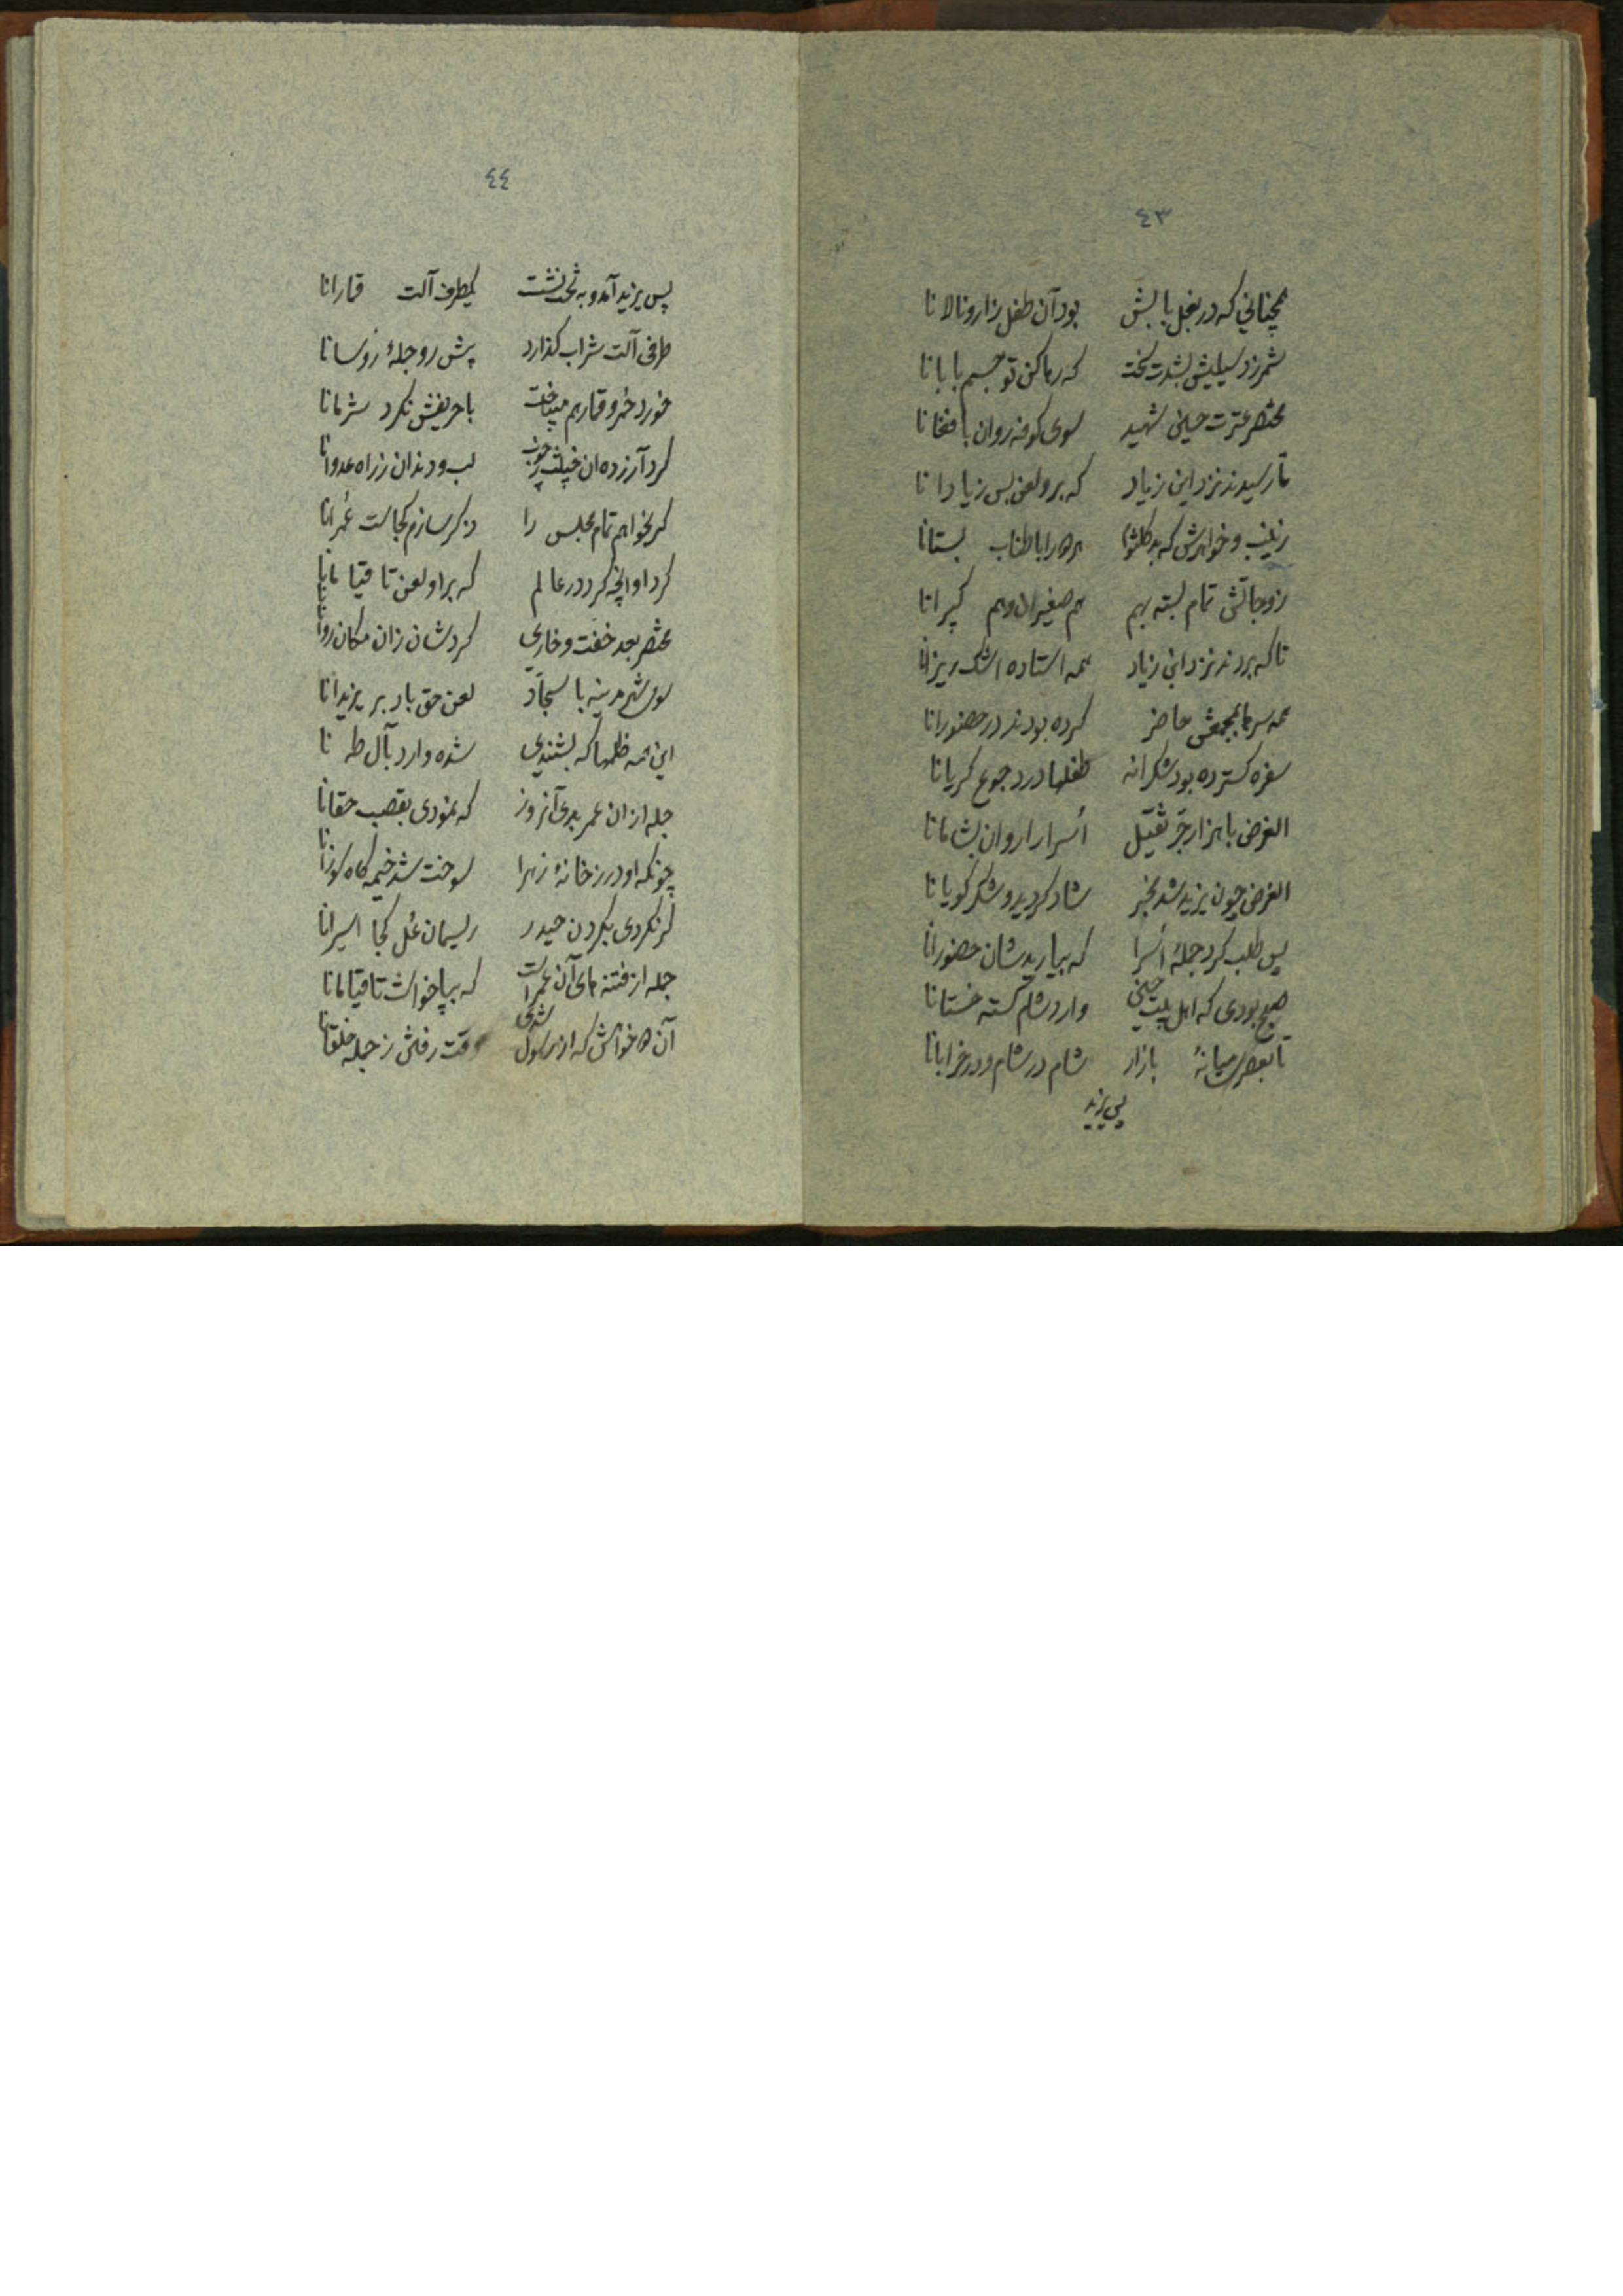 ٤٣
همچنانی که در بغل بابش بود آن طفل زار و نالانا
شمر زد سیلیش بشدت سخت که رها کن تو جسم بابانا
مختصر عترت حسین شهید سوی کوفه روان بافغانا
تا رسیدند نزد ابن زیاد که برو لعن بس زیادانا
زینب و خواهرش که بد کلثوم هر دو را با طناب بستانا
زوجاتش تمام بسته بهم هم صغیران و هم کبیرانا
تا که بردند نزد ابن زیاد همه استاده اشک ریزانا
همه سرها بمجمعش حاضر کرده بودند در حضورانا
سفره گسترده بود شکرانه طفلها درد جوع گریانا
الغرض با هزار جر ثقیل أسرا را روان بشامانا
الغرض چون یزید شد بخبر شاد گردید و شکر گویانا
پس طلب کرد جملهٔ أسرا که بیاریدشان حضورانا
صبح بودی که اهل بیت حسین وارد شام گشته خستانا
تا بعصر میانهٔ بازار شام در شام و در خرابانا
پس یزید
٤٤
پس یزید آمد و به تخت نشست یکطرف آلت قمارانا
طرفی آلت شراب گذارد پیش رو جملهٔ رؤسانا
خورد خمر و قمار هم میباخت با حریفش نکرد شرمانا
کرد آزرده ان خبیث بچوب لب و دندان زراه عدوانا
گر بخواهم تمام مجلس را ذکر سازم کجاست عُمرانا
کرد او انچه کرد در عالم که براو لعن تا قیامانا
مختصر بعد خفت و خاری کردشان زان مکان روانا
سوی شهر مدینه با سجاد لعن حق باد بر یزیدانا
این همه ظلمها که بشنیدی شده وارد بآل طه نا
جمله از ان عمر بدی آنروز که نمودی بقصب حقانا
چونکه او در زخانهٔ زهرا سوخت شد خیمه گاه سوزانا
گر نکردی بگردن حیدر ریسمان غل کجا اسیرانا
جمله از فتنه های آن عمر است که بپا خواست تا قیامانا
آن دو خواهش که از رسول شدی وقت رفتن ز جمله خلقانا